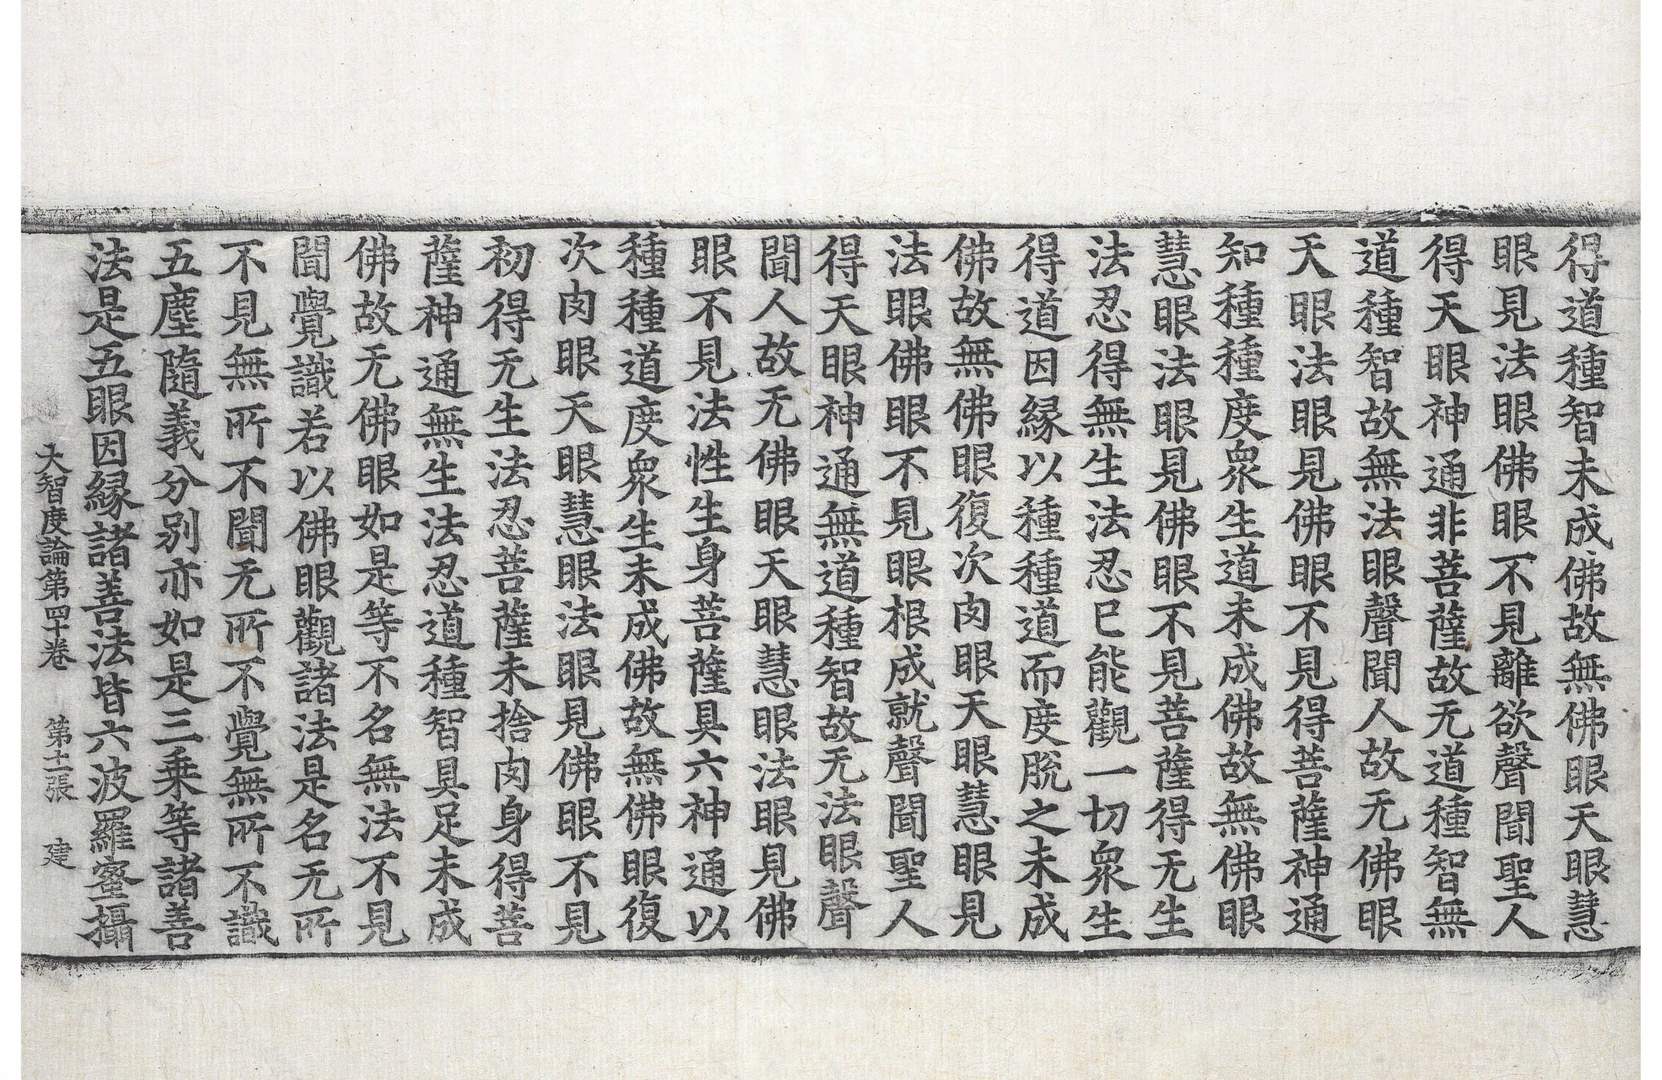 得道種智未成佛故無佛眼天眼慧
眼見法眼佛眼不見離欲聲聞聖人
得天眼神通非菩薩故无道種智無
道種智故無法眼聲聞人故无佛眼
天眼法眼見佛眼不見得菩薩神通
知種種度衆生道未成佛故無佛眼
慧眼法眼見佛眼不見菩薩得无生
法忍得無生法忍已能觀一切衆生
得道因緣以種種道而度脫之未成
佛故無佛眼復次肉眼天眼慧眼見
法眼佛眼不見眼根成就聲聞聖人
得天眼神通無道種智故无法眼聲
聞人故无佛眼天眼慧眼法眼見佛
眼不見法性生身菩薩具六神通以
種種道度衆生未成佛故無佛眼復
次肉眼天眼慧眼法眼見佛眼不見
初得无生法忍菩薩未捨肉身得菩
薩神通無生法忍道種智具足未成
佛故无佛眼如是等不名無法不見
聞覺識若以佛眼觀諸法是名无所
不見無所不聞无所不覺無所不識
五塵隨義分別亦如是三乘等諸善
法是五眼因緣諸善法皆六波羅蜜攝
大智度論第四十卷 第十二張 建